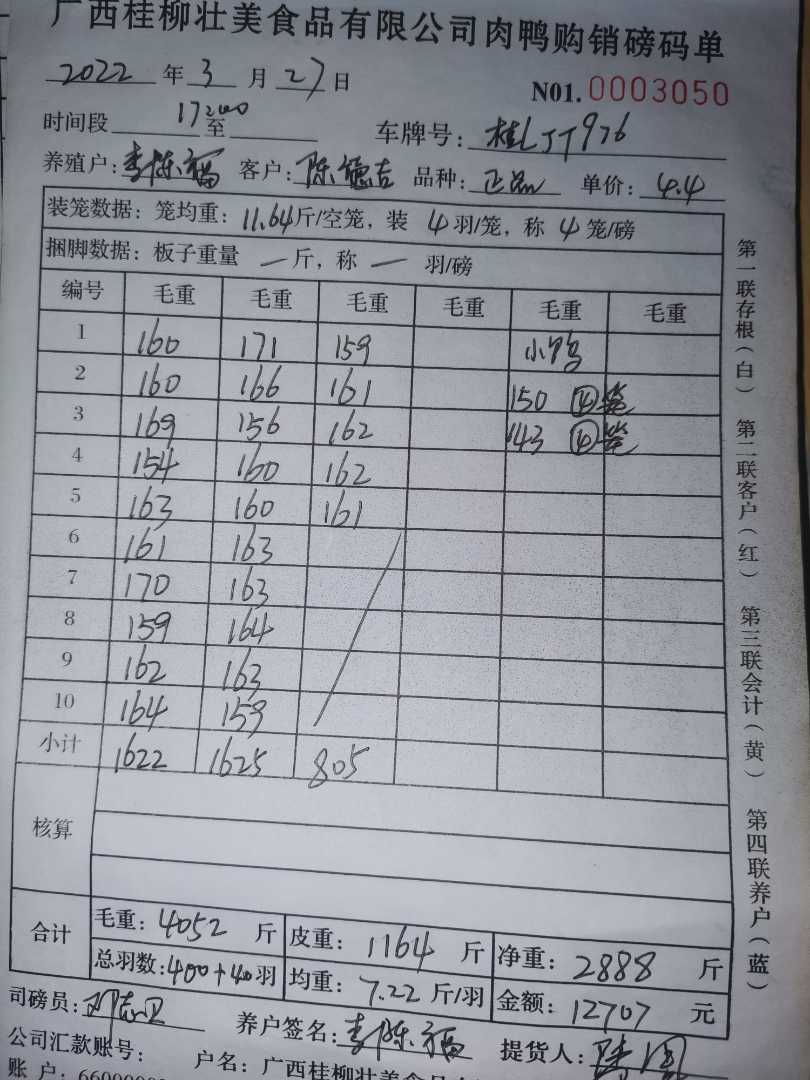 广西桂柳壮美食品有限公司肉鸭购销磅码单
2022 年 3 月 27 日
N01. 0003050
时间段 17:00 至 车牌号: 桂LJT976
养殖户: 李陈福 客户: 陈德吉 品种: 正品 单价: 4.4
装笼数据: 笼均重: 11.64 斤/空笼, 装 4 羽/笼, 称 4 笼/磅
捆脚数据: 板子重量 — 斤, 称 — 羽/磅
编号 毛重 毛重 毛重 毛重 毛重 毛重
1 160 171 159 小鸭
2 160 166 161 150 ④笼
3 169 156 162 143 ④笼
4 154 160 162
5 163 160 161
6 161 163
7 170 163
8 159 164
9 162 163
10 164 159
小计 1622 1625 805
核算
合计 毛重: 4052 斤 皮重: 1164 斤 净重: 2888 斤
总羽数: 400+40 羽 均重: 7.22 斤/羽 金额: 12707 元
司磅员: 养户签名: 李陈福 提货人:
公司汇款账号: 户名: 广西桂柳壮美食品有
账 户: 6600000
第一联存根(白) 第二联客户(红) 第三联会计(黄) 第四联养户(蓝)